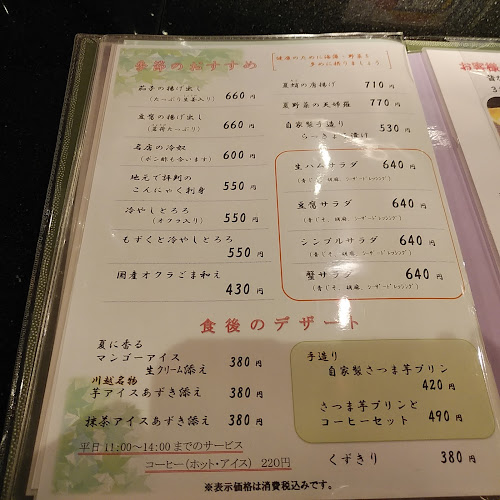 季節のおすすめ
健康のために海藻・野菜を
多めに摂りましょう
茄子の揚げ出し
(たっぷり生姜入り) 660円
豆腐の揚げ出し
(茗荷たっぷり) 660円
名店の冷奴
(ポン酢も合います) 600円
地元で評判の
こんにゃく刺身 550円
冷やしとろろ
(オクラ入り) 550円
もずくと冷やしとろろ
550円
国産オクラごま和え
430円
夏蛸の唐揚げ 710円
夏野菜の天婦羅 770円
自家製手造り
らっきょう漬け 530円
生ハムサラダ 640円
(青じそ、胡麻、シーザードレッシング)
豆腐サラダ 640円
(青じそ、胡麻、シーザードレッシング)
シンプルサラダ 640円
(青じそ、胡麻、シーザードレッシング)
蟹サラダ 640円
(青じそ、胡麻、シーザードレッシング)
食後のデザート
夏に香る
マンゴーアイス
生クリーム添え 380円
川越名物
芋アイスあずき添え 380円
抹茶アイスあずき添え 380円
平日 11:00～14:00 までのサービス
コーヒー(ホット・アイス) 220円
手造り
自家製さつま芋プリン
420円
さつま芋プリンと
コーヒーセット 490円
くずきり 380円
※表示価格は消費税込みです。
お客様